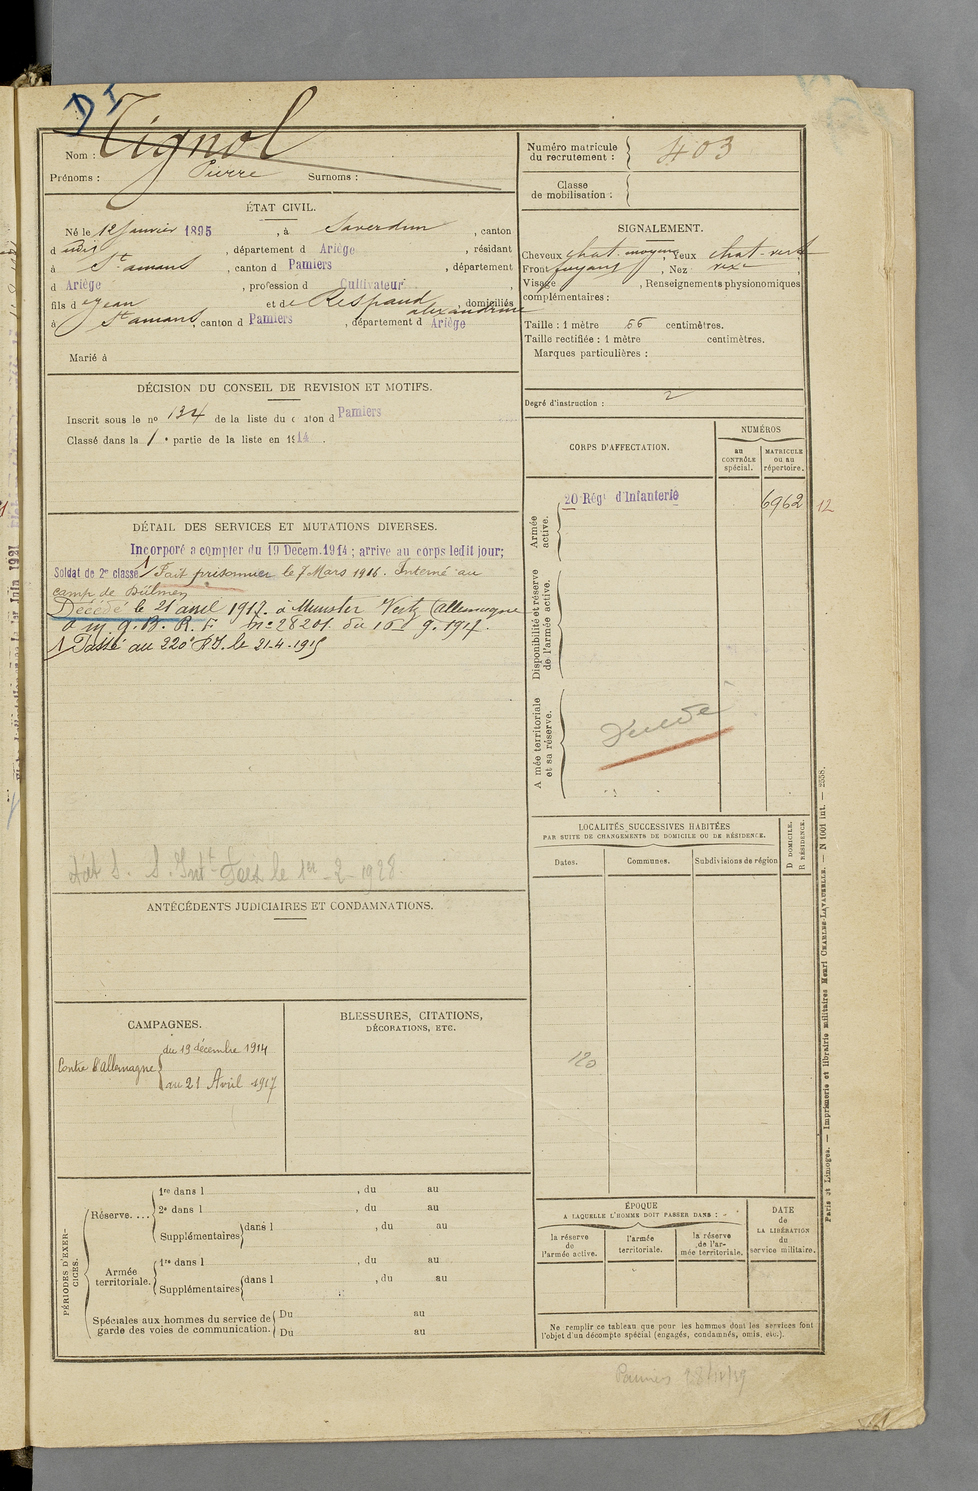 D I
Tignol
Nom :
Prénoms : Pierre Surnoms :
Numéro matricule
du recrutement : 403
Classe
de mobilisation :
ÉTAT CIVIL.
Né le 12 Janvier 1895, à Saverdun, canton
d udit, département d Ariège, résidant
à St amans, canton d Pamiers, département
d Ariège, profession d Cultivateur,
fils d e Jean et de Respaud alexandrine, domiciliés
à St amans, canton d Pamiers, département d Ariège
Marié à
SIGNALEMENT.
Cheveux chat. moyens, Yeux chat-vert
Front fuyant, Nez rext
Visage , Renseignements physionomiques
complémentaires :
Taille : 1 mètre 66 centimètres.
Taille rectifiée : 1 mètre centimètres.
Marques particulières :
Degré d'instruction : 2
DÉCISION DU CONSEIL DE REVISION ET MOTIFS.
Inscrit sous le no 134 de la liste du canton d Pamiers
Classé dans la 1 e partie de la liste en 1914.
CORPS D'AFFECTATION.
NUMÉROS
au
CONTRÔLE
spécial.
MATRICULE
ou au
répertoire.
Armée
active.
20 Régt d'Infanterie 6962 12
Disponibilité et réserve
de l'armée active.
A mée territoriale
et sa réserve.
Décédé
DÉTAIL DES SERVICES ET MUTATIONS DIVERSES.
Incorporé a compter du 19 Decem. 1914 ; arrive au corps ledit jour;
Soldat de 2e classe 1/ Fait prisonnier le 7 Mars 1916. Interné au
camp de Dülmen
Décédé le 21 avril 1917. à Munster Vestf (allemagne
a m. g. B. R. F. No 28201. du 16 9. 1917.
1/ Passé au 220e RI. le 21-4-1915
le 1er-2-1928
LOCALITÉS SUCCESSIVES HABITÉES
PAR SUITE DE CHANGEMENTS DE DOMICILE OU DE RÉSIDENCE.
Dates. Communes. Subdivisions de région
D DOMICILE.
R RÉSIDENCE.
120
ANTÉCÉDENTS JUDICIAIRES ET CONDAMNATIONS.
CAMPAGNES.
Contre l'allemagne
du 19 décembre 1914
au 21 Avril 1917
BLESSURES, CITATIONS,
DÉCORATIONS, ETC.
PÉRIODES D'EXER-
CICES.
Réserve. ...
1re dans l , du au
2e dans l , du au
Supplémentaires dans l , du au
Armée
territoriale.
1re dans l , du au
Supplémentaires dans l , du au
Spéciales aux hommes du service de
garde des voies de communication.
Du au
Du au
ÉPOQUE
A LAQUELLE L'HOMME DOIT PASSER DANS :
la réserve
de
l'armée active.
l'armée
territoriale.
la réserve
de l'ar-
mée territoriale.
DATE
de
LA LIBÉRATION
du
service militaire.
Ne remplir ce tableau que pour les hommes dont les services font
l'objet d'un décompte spécial (engagés, condamnés, omis, etc.).
Paris et Limoges. — Imprimerie et librairie militaires Henri CHARLES-LAVAUZELLE. — N 1001 int. — 2558.
Pamiers